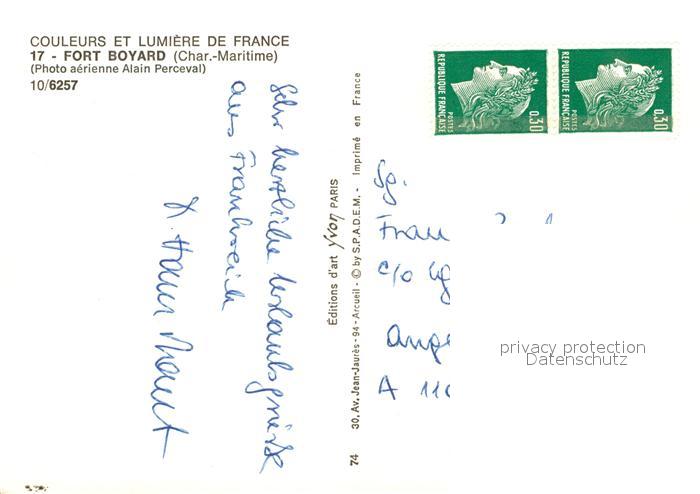 COULEURS ET LUMIÈRE DE FRANCE
17 - FORT BOYARD (Char.-Maritime)
(Photo aérienne Alain Perceval)
10/6257
Sehr herzliche Urlaubsgrüße
aus Frankreich
Éditions d'art yvon PARIS
74 30, Av. Jean-Jaurès - 94 - Arcueil - © by S.P.A.D.E.M. - Imprimé en France
REPUBLIQUE FRANÇAISE
POSTES
0,30
REPUBLIQUE FRANÇAISE
POSTES
0,30
Sg.
Frau
c/o
A 11
privacy protection
Datenschutz